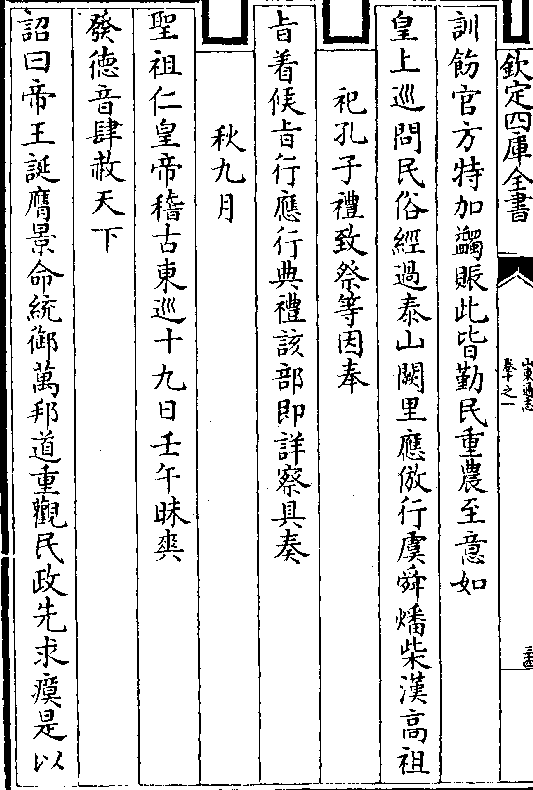 欽定四庫全書
山東通志
卷十之一
訓飭官方特加蠲賑此皆勤民重農至意如
皇上巡問民俗經過泰山闕里應倣行虞舜燔柴漢高祖
祀孔子禮致祭等因奉
㫖着候㫖行應行典禮該部即詳察具奏
秋九月
聖祖仁皇帝稽古東巡十九日壬午昧爽
發德音肆赦天下
詔曰帝王誕膺景命統御萬邦道重觀民政先求瘼是以